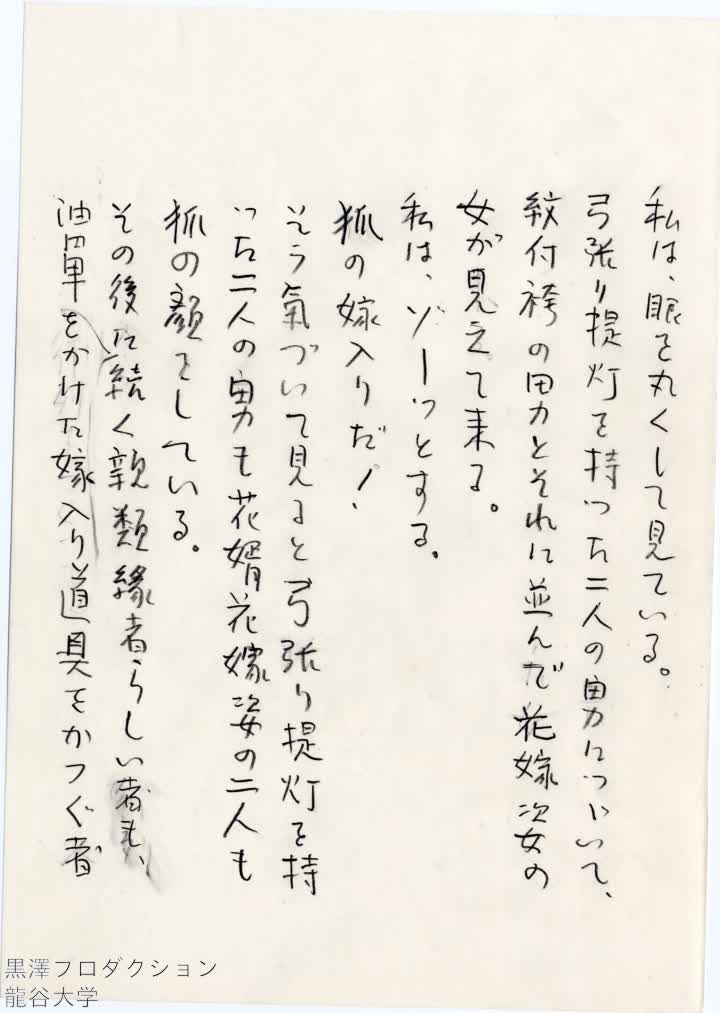 私は、眼を丸くして見ている。
弓張り提灯を持った二人の男につゞいて、
紋付袴の男とそれに並んで花嫁姿の
女が見えて来る。
私は、ゾーッとする。
狐の嫁入りだ！
そう氣づいて見ると弓張り提灯を持
った二人の男も花婿花嫁姿の二人も
狐の顔をしている。
その後に続く親類縁者らしい者も、
油單をかけた嫁入り道具をかつぐ者
黒澤プロダクション
龍谷大学